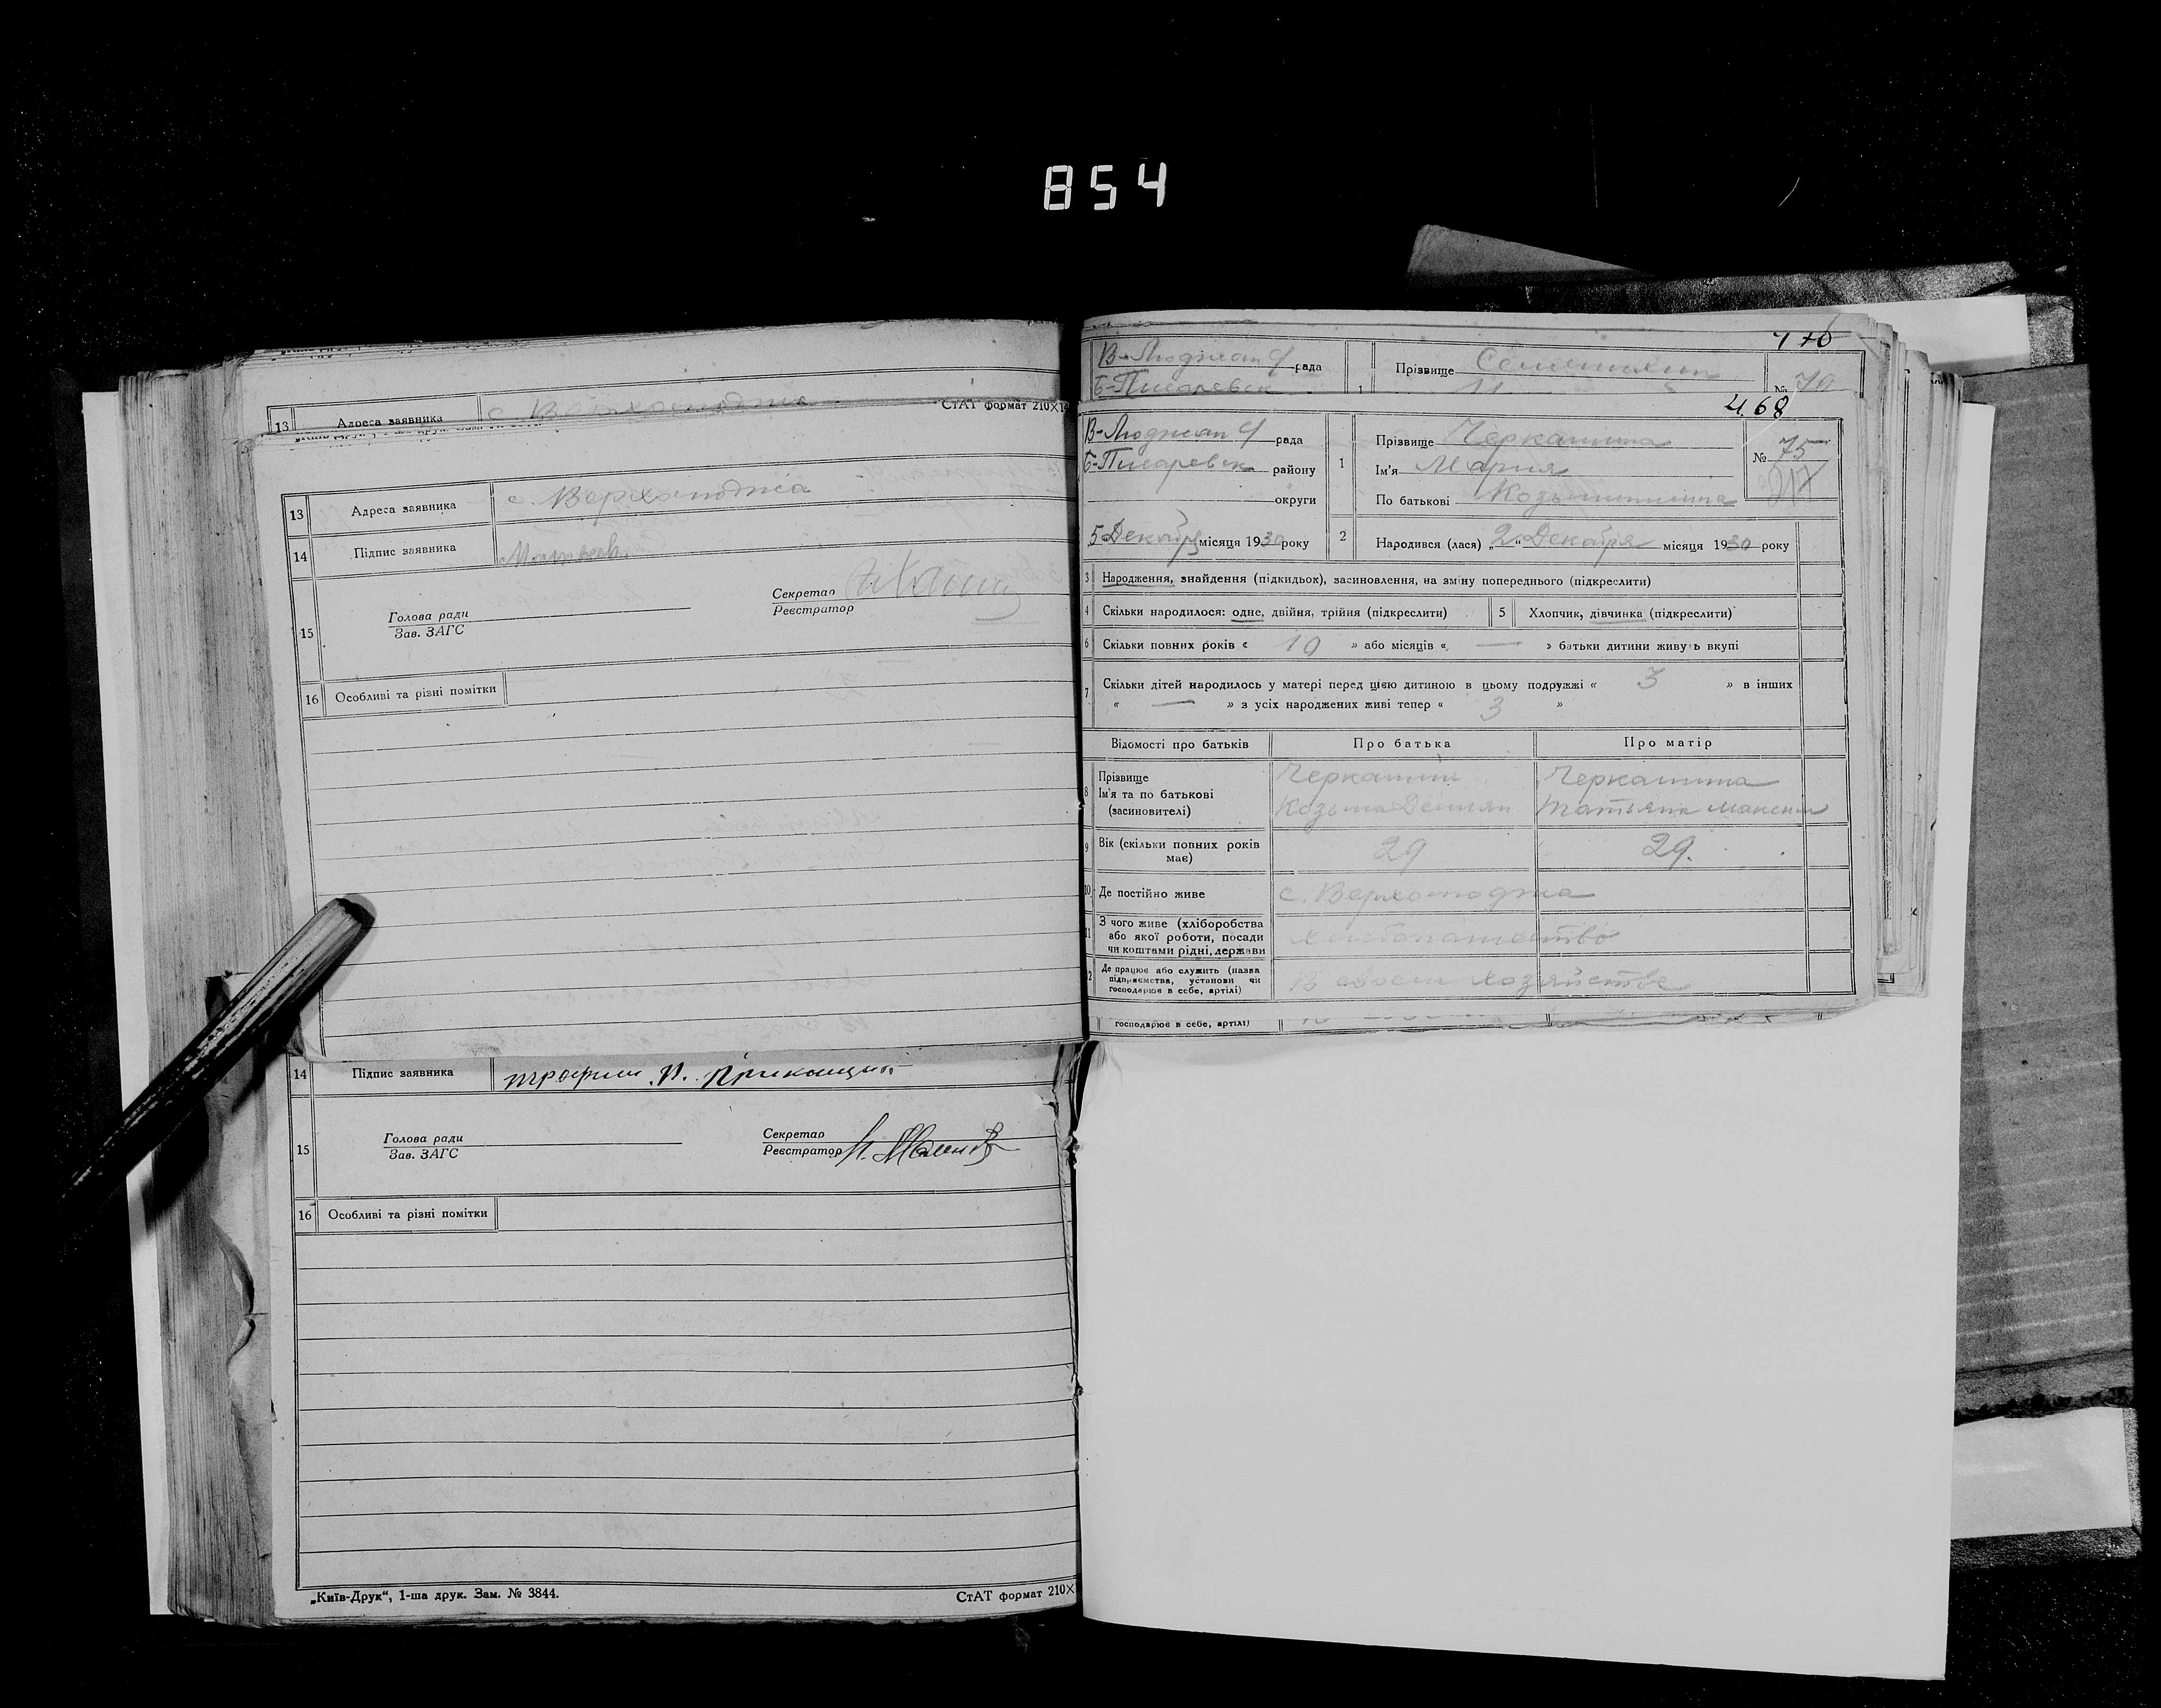 854
13 Адреса заявника с. Верхолюджа
СтАТ формат 210Х1
13 Адреса заявника с. Верхолюджа
14 Підпис заявника
15 Голова ради
Зав. ЗАГС
Секретар
Реєстратор
16 Особливі та різні помітки
14 Підпис заявника
15 Голова ради
Зав. ЗАГС
Секретар
Реєстратор
16 Особливі та різні помітки
„Київ-Друк“, 1-ша друк. Зам. № 3844.
СтАТ формат 210Х
470
рада
Б-Писаревск
1 Прізвище
№ 70
468
рада
Б-Писаревск району
округи
5 Декабря місяця 1930 року
1 Прізвище Черкашина
Ім'я Мария
По батькові Козьминична
№ 75
217
2 Народився (лася) „2“ Декабря місяця 1930 року
3 Народження, знайдення (підкидьок), засиновлення, на зміну попереднього (підкреслити)
4 Скільки народилося: одне, двійня, трійня (підкреслити)
5 Хлопчик, дівчинка (підкреслити)
6 Скільки повних років « 10 » або місяців « — » батьки дитини живуть вкупі
7 Скільки дітей народилось у матері перед цією дитиною в цьому подружжі « 3 » в інших
« — » з усіх народжених живі тепер « 3 »
Відомості про батьків Про батька Про матір
8 Прізвище Черкашин Черкашина
Ім'я та по батькові Козьма Демьян Татьяна Максим
(засиновителі)
9 Вік (скільки повних років 29 29.
має)
10 Де постійно живе с. Верхолюджа
11 З чого живе (хліборобства
або якої роботи, посади хлебопашество
чи коштами рідні, держави
12 Де працює або служить (назва
підприємства, установи чи В своем хозяйстве
господарює в себе, артілі)
господарює в себе, артілі)